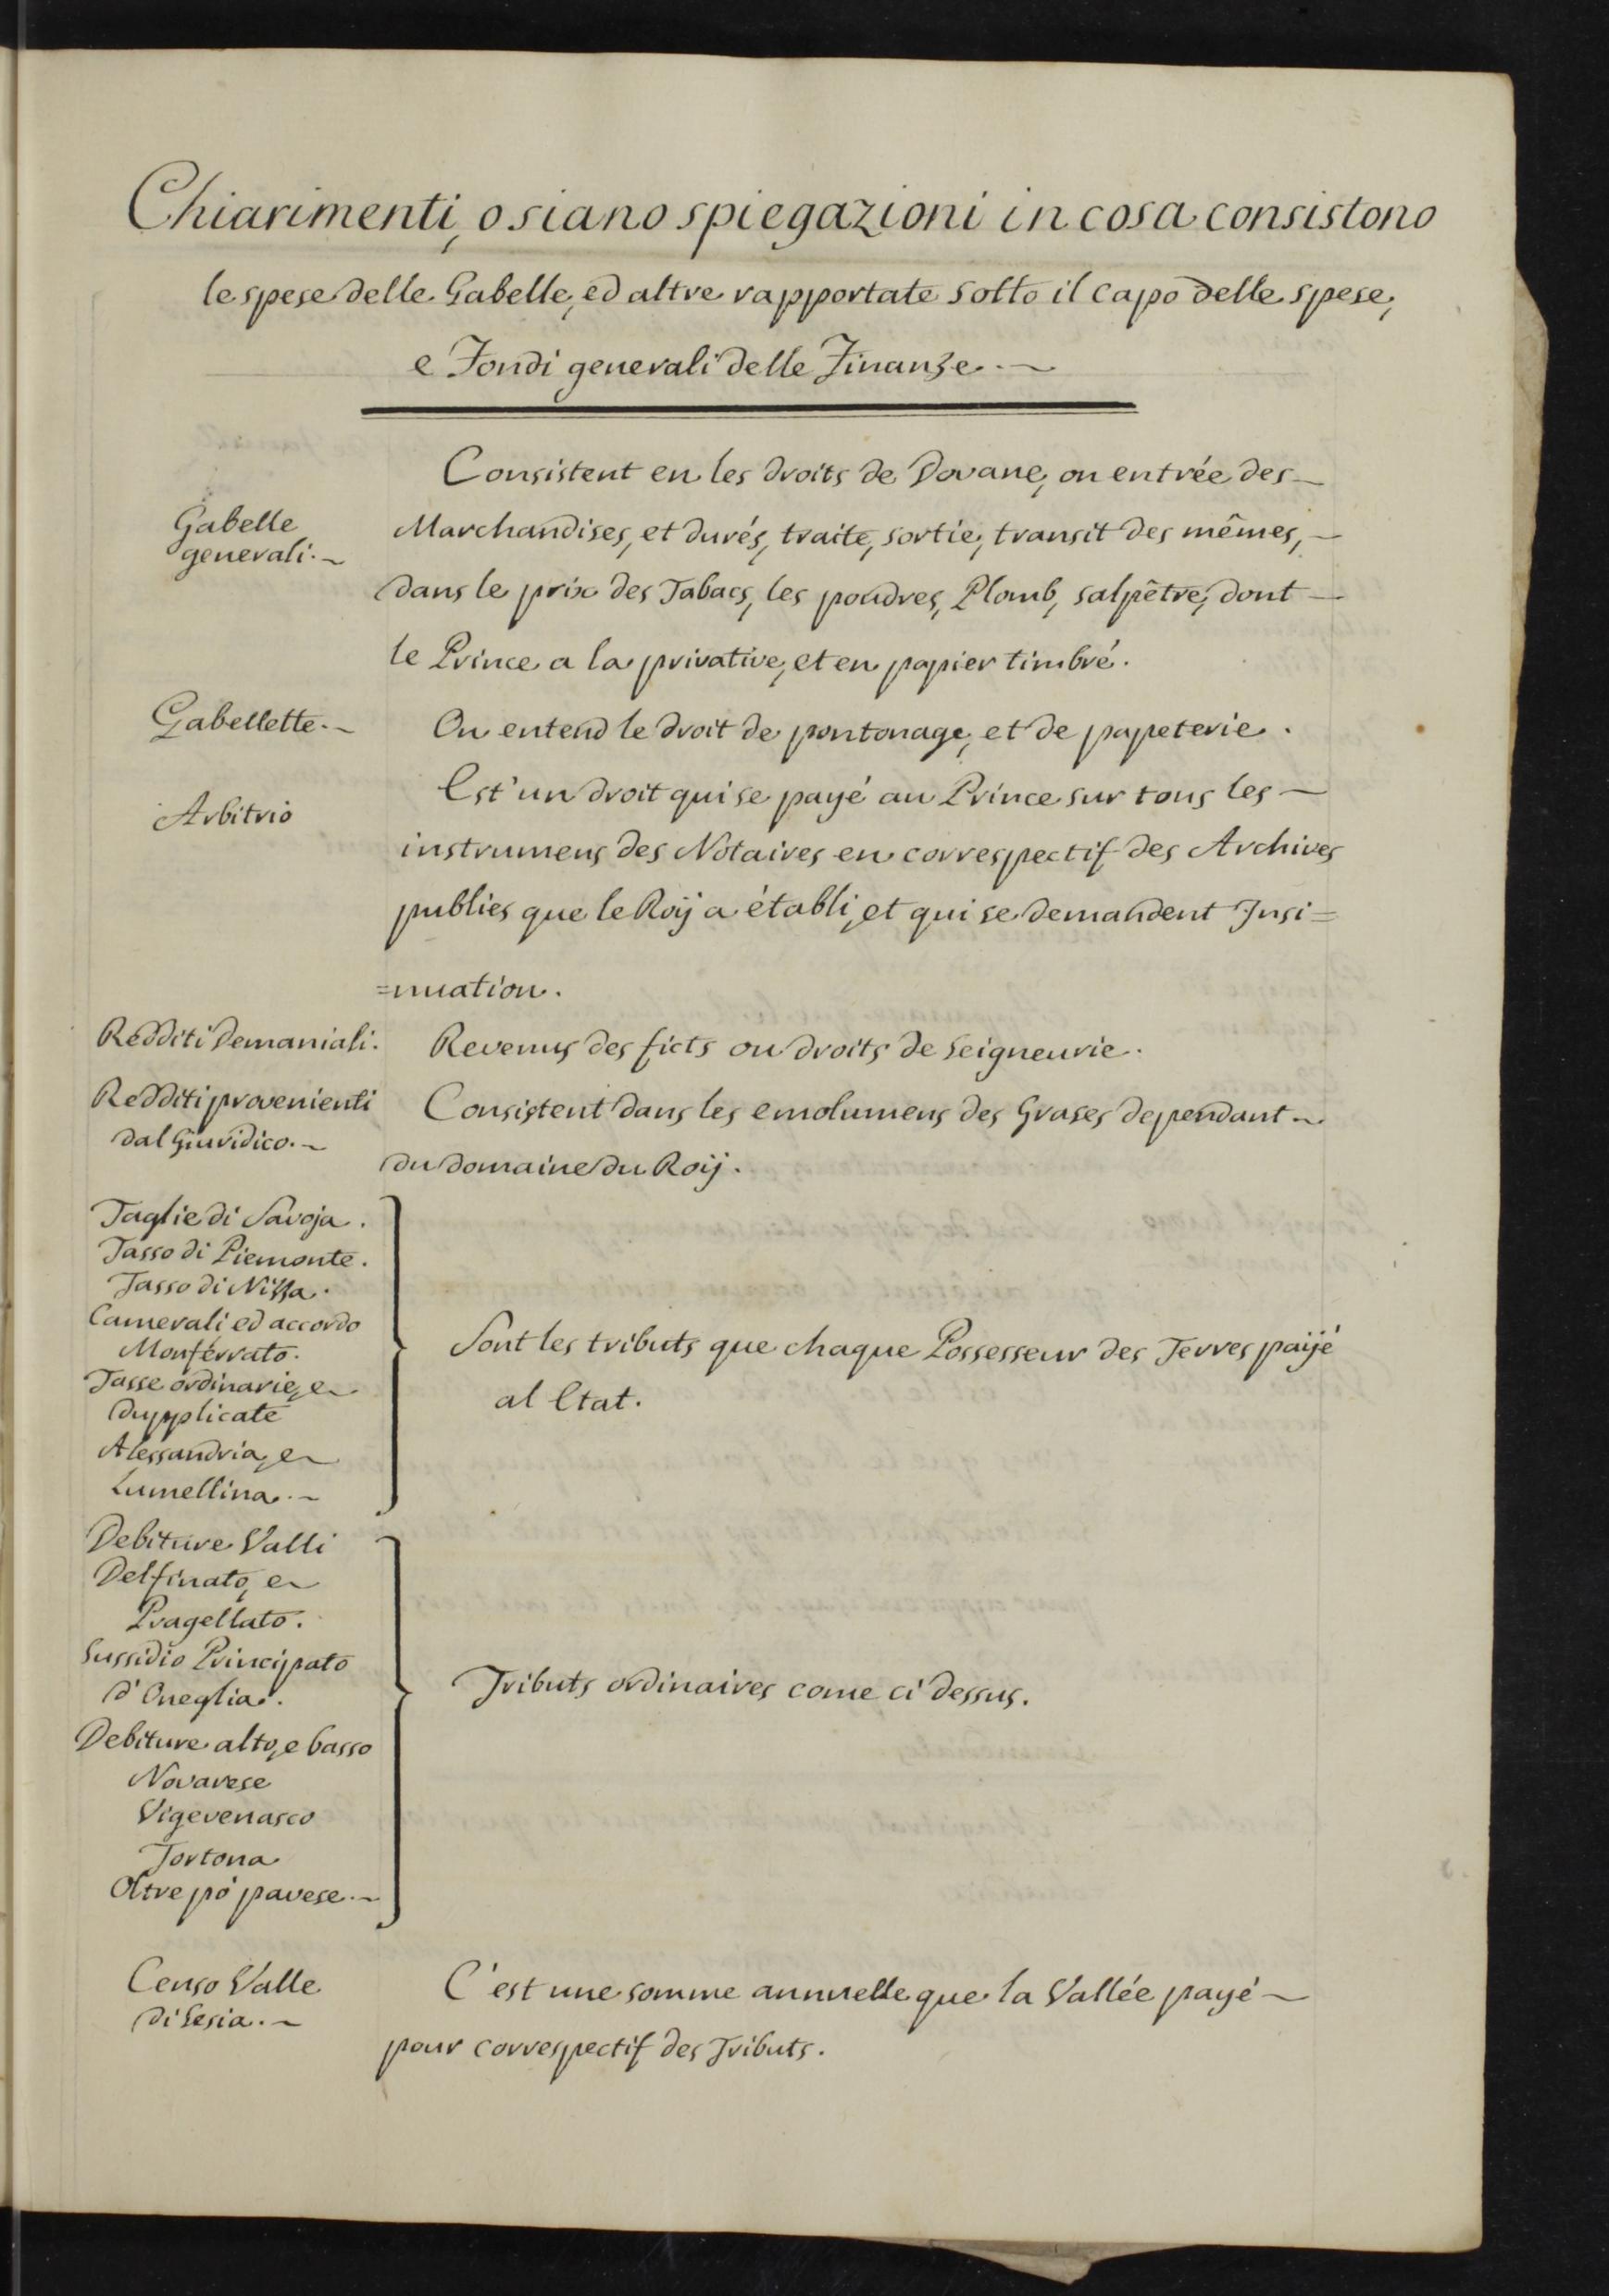 Chiarimenti, o siano spiegazioni in cosa consistono
le spese delle Gabelle, ed altre rapportate sotto il capo delle spese,
e Fondi generali delle Finanze.
Consistent en les droits de Dovane, ou entrée des
Gabelle
generali.
Marchandises, et durés, traite, sortie, transit des mêmes,
dans le prix des Tabacs, les poudres, Plomb, salpêtre, dont
le Prince a la privative, et en papier timbré.
Gabellette.
On entend le droit de pontonage, et de papeterie.
Arbitrio
Est' un droit qui se payé au Prince sur tous les
instrumens des Notaires en correspectif des Archives
publies que le Roÿ a établi, et qui se demandent Insi=
=nuation.
Redditi Demaniali.
Revenus des ficts ou droits de Seigneurie.
Redditi provenienti
dal Giuridico.
Consistent dans les emolumens des Grases dependant
du domaine du Roÿ.
Taglie di Savoja.
Tasso di Piemonte.
Tasso di Nissa.
Camerali ed accordo
Monferrato.
Tasse ordinarie, e
dupplicate
Alessandria, e
Lumellina.
Sont les tributs que chaque Possesseur des Terres paÿé
al Etat.
Debiture Valli
Delfinato, e
Pragellato.
Sussidio Principato
d'Oneglia.
Debiture alto, e basso
Novarese
Vigevenasco
Tortona
Oltre pò pavese.
Tributs ordinaires come ci dessus.
Censo Valle
di Sesia.
C'est une somme annuelle que la Vallée payé
pour correspectif des Tributs.